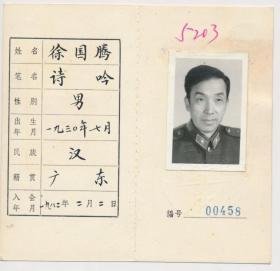 5203
姓名 徐国腾
笔名 诗吟
性别 男
出生年月 一九三〇年七月
民族 汉
籍贯 广东
入会年月 一九八二年二月二日
编号 00458